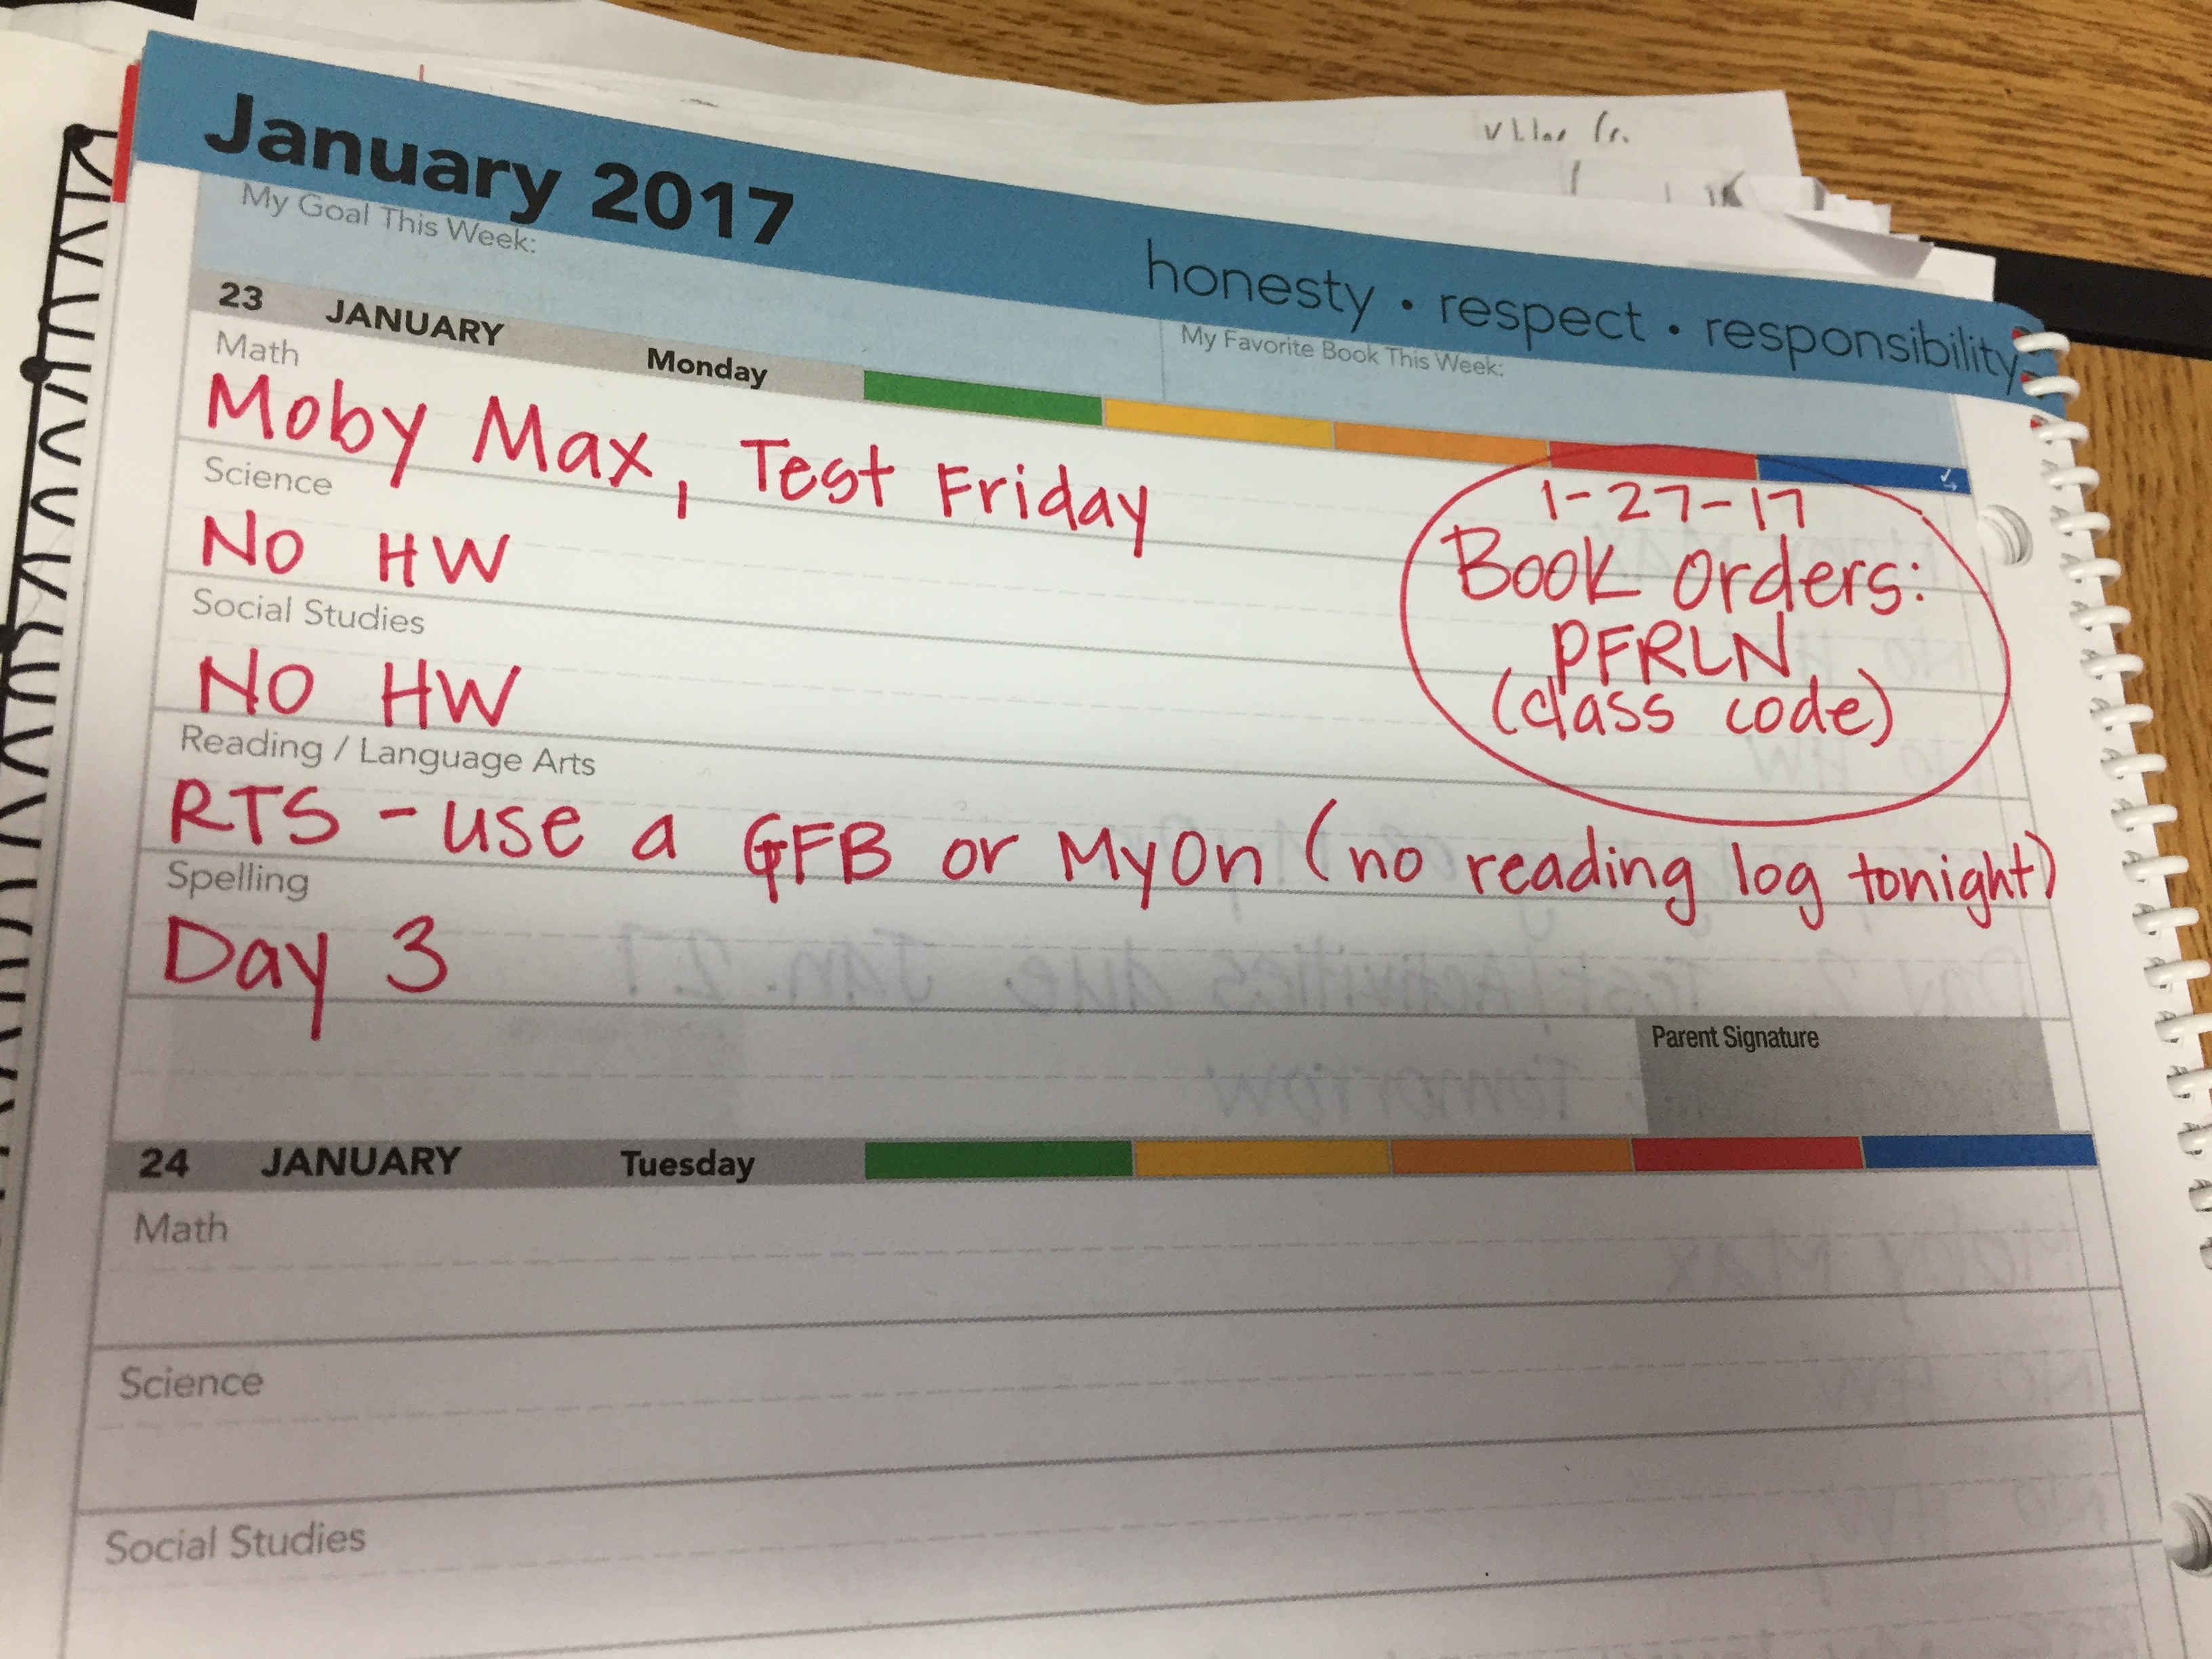 January 2017
honesty • respect • responsibility
My Goal This Week:
My Favorite Book This Week:
23 JANUARY Monday
Math
Moby Max, Test Friday
Science
No HW
Social Studies
No HW
1-27-17
Book Orders:
PFRLN
(class code)
Reading / Language Arts
RTS - use a GFB or MyOn (no reading log tonight)
Spelling
Day 3
Parent Signature
24 JANUARY Tuesday
Math
Science
Social Studies